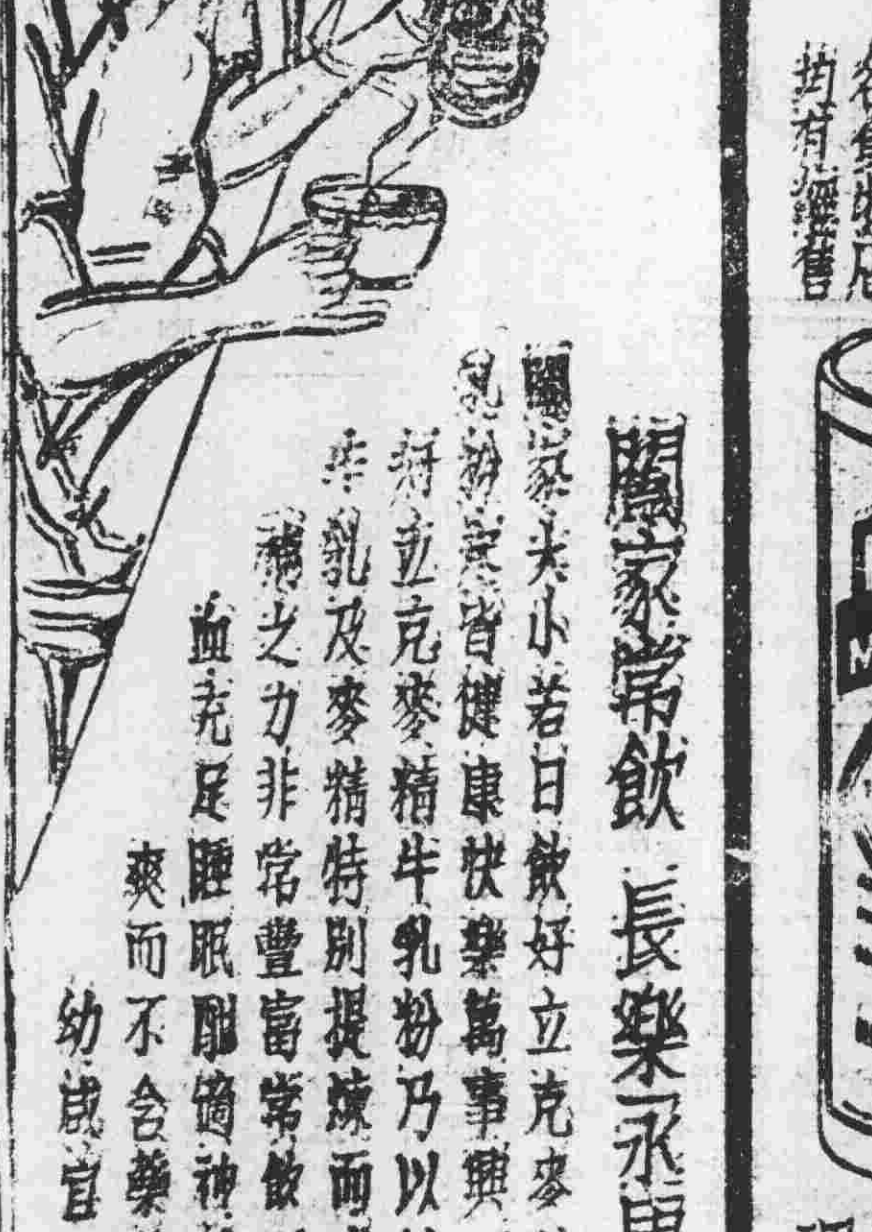 均有經售
闔家常飲 長樂永
闔家大小若日飲好立克麥
乳粉定皆健康快樂萬事興
好立克麥精牛乳粉乃以
牛乳及麥精特別提煉而
補之力非常豐富常飲
血充足睡眠酣適神
爽而不含藥
幼咸宜
M